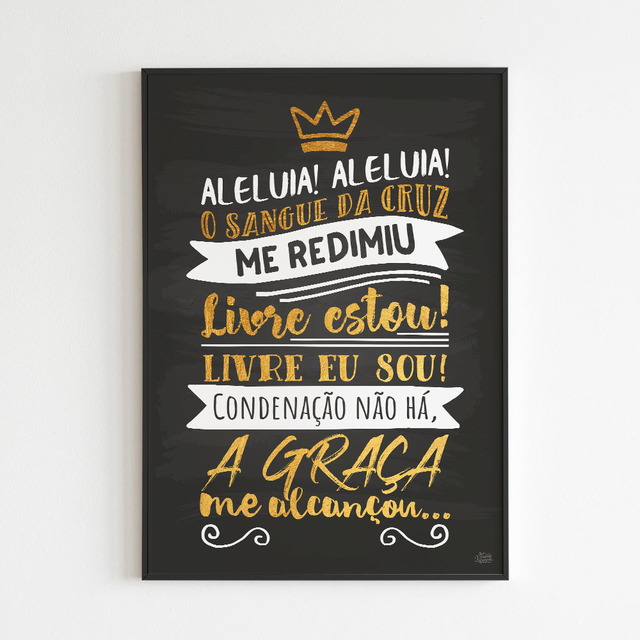 ALELUIA! ALELUIA!
O SANGUE DA CRUZ
ME REDIMIU
Livre estou!
LIVRE EU SOU!
CONDENAÇÃO NÃO HÁ,
A GRAÇA
me alcançou...